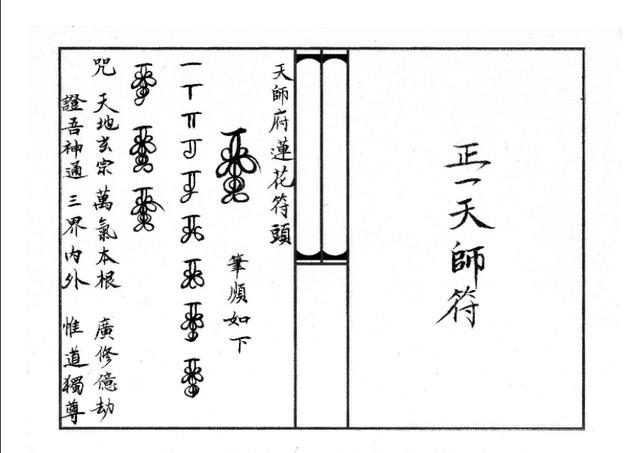 正一天師符
天師府蓮花符頭
筆順如下
咒 天地玄宗 萬氣本根 廣修億劫
證吾神通 三界內外 惟道獨尊